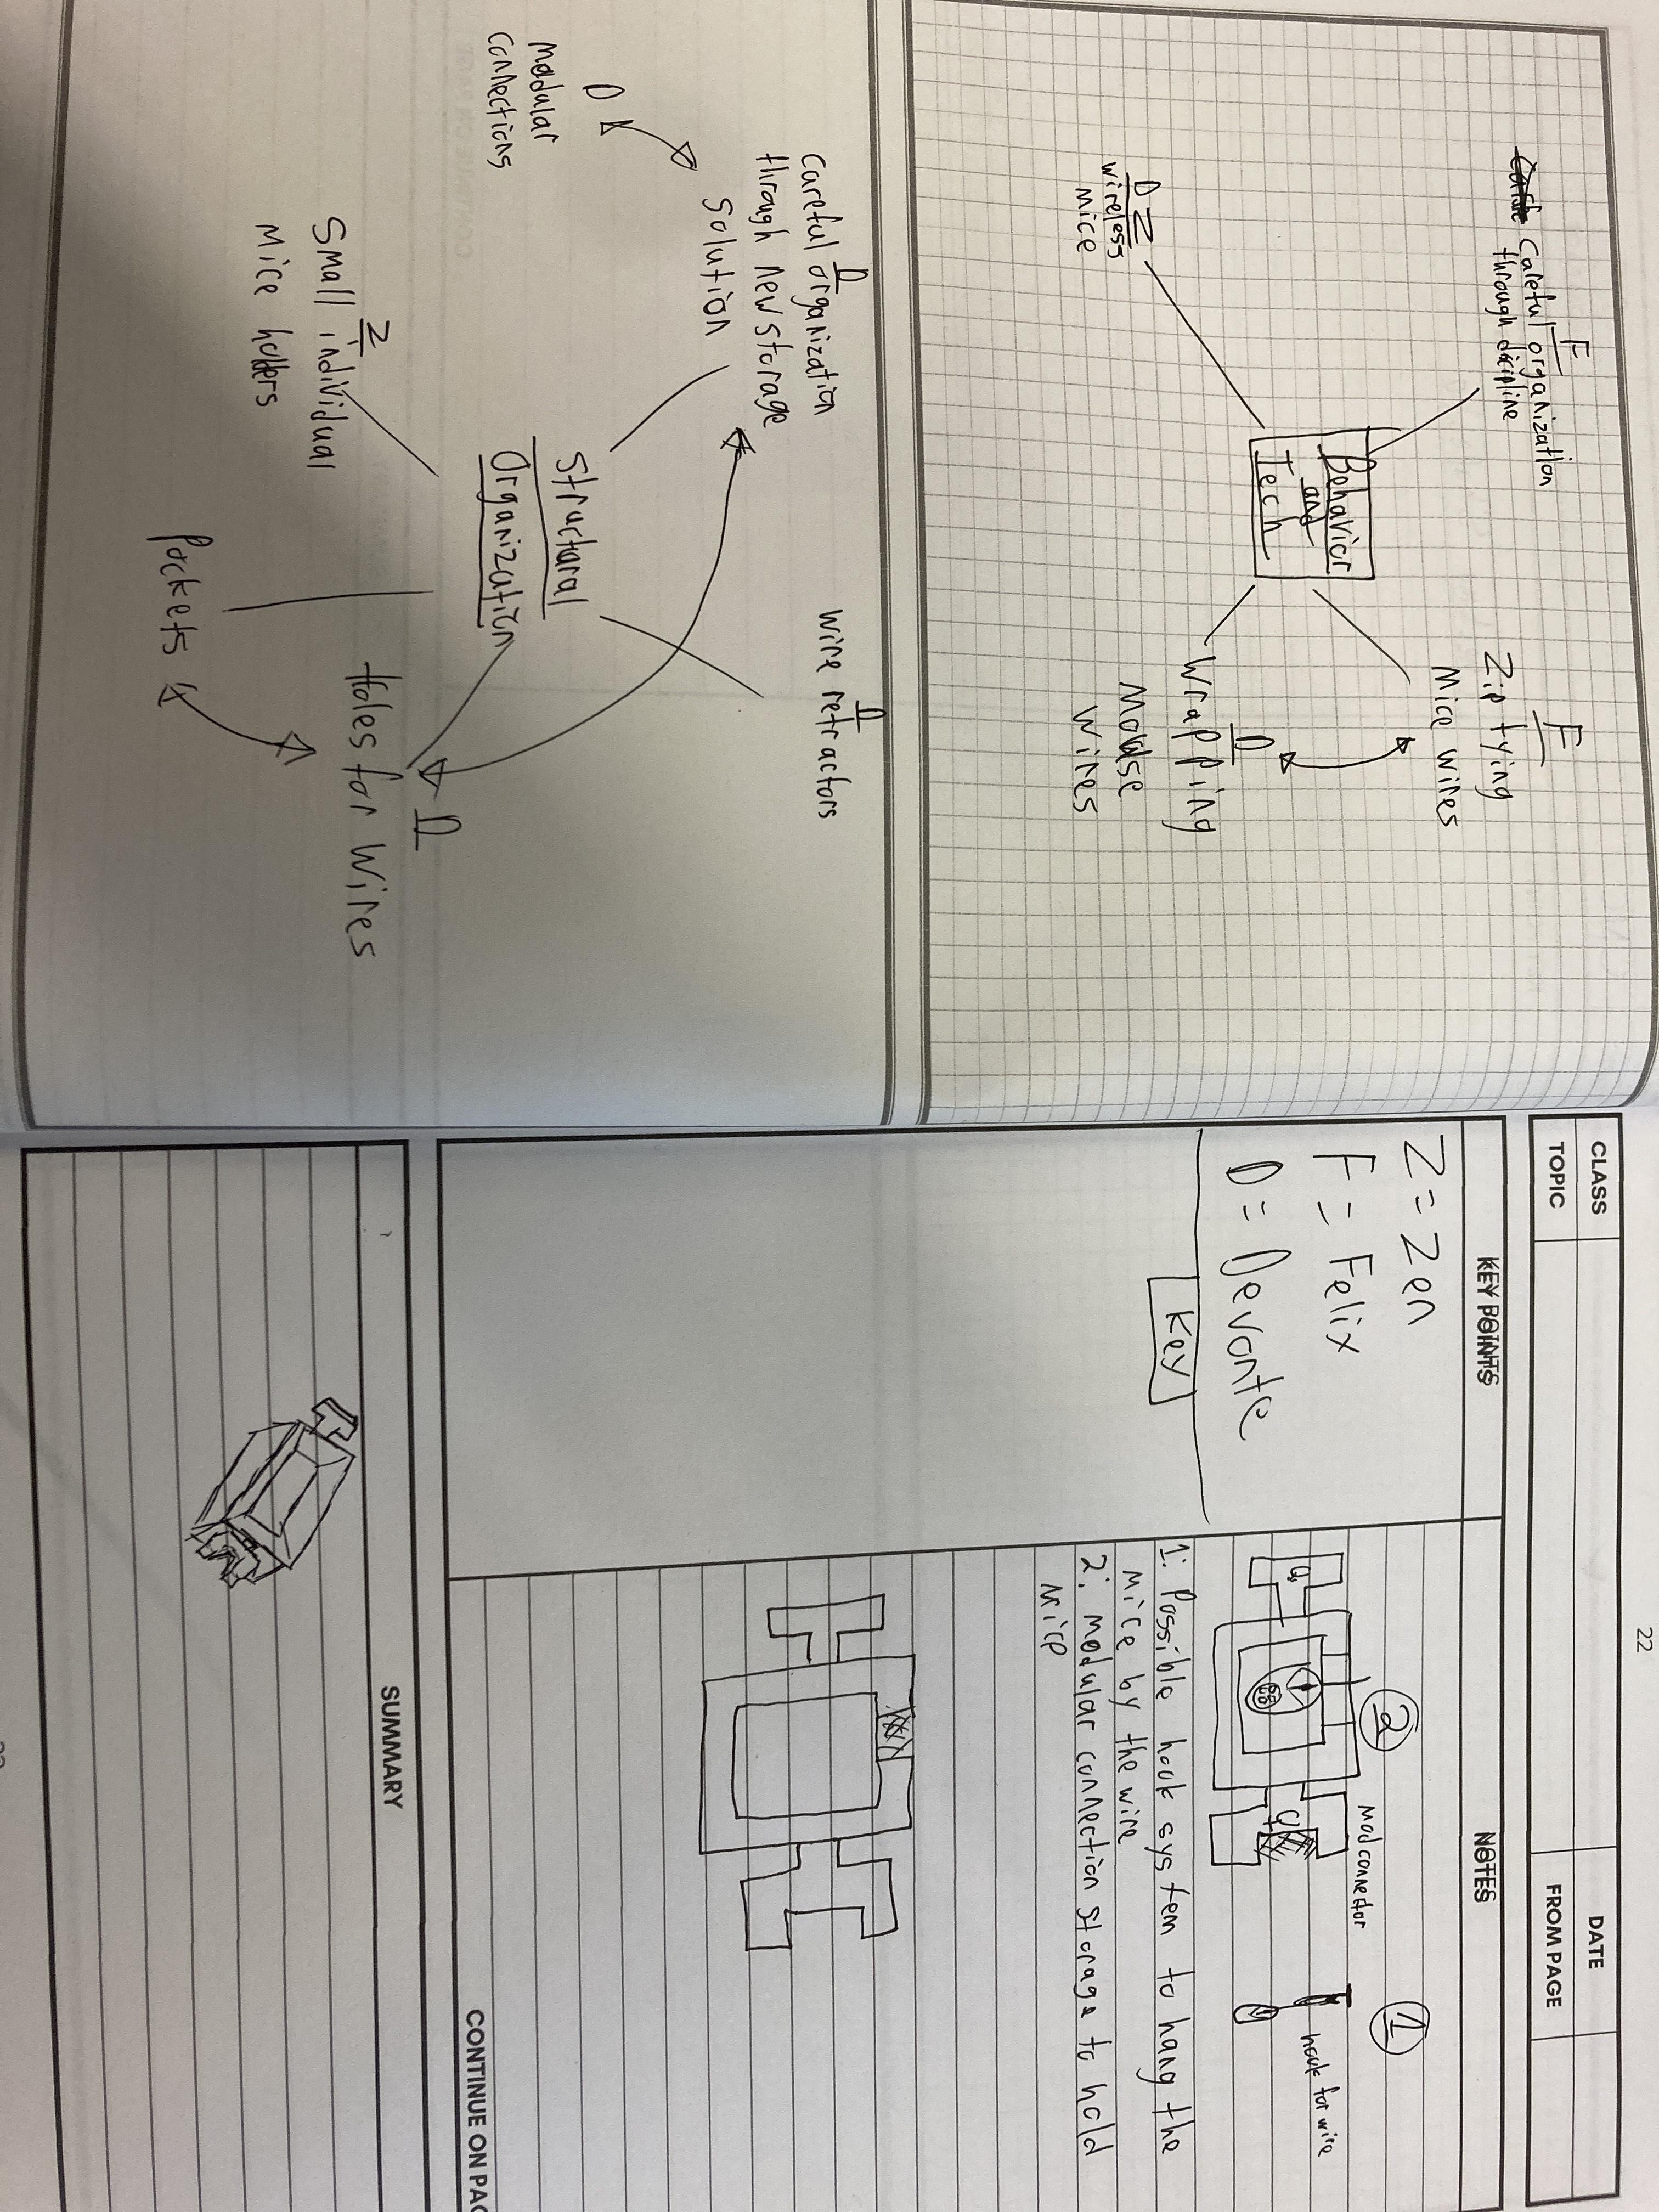 F
Careful organization
through discipline
D Z
wireless
mice
Behavior
and
Tech
F
Zip tying
Mice wires
D
Wrapping
Mouse
Wires
D
Careful organization
through new storage
Solution
D
modular
connections
Structural
Organization
D
wire retractors
Z
Small individual
Mice holders
D
Holes for Wires
Pockets
22
CLASS
DATE
TOPIC
FROM PAGE
KEY POINTS
NOTES
Z = Zen
F = Felix
D = Devonte
Key
2
Mod connector
1
hook for wire
1: Possible hook system to hang the
mice by the wire
2: modular connection storage to hold
mice
CONTINUE ON PAG
SUMMARY